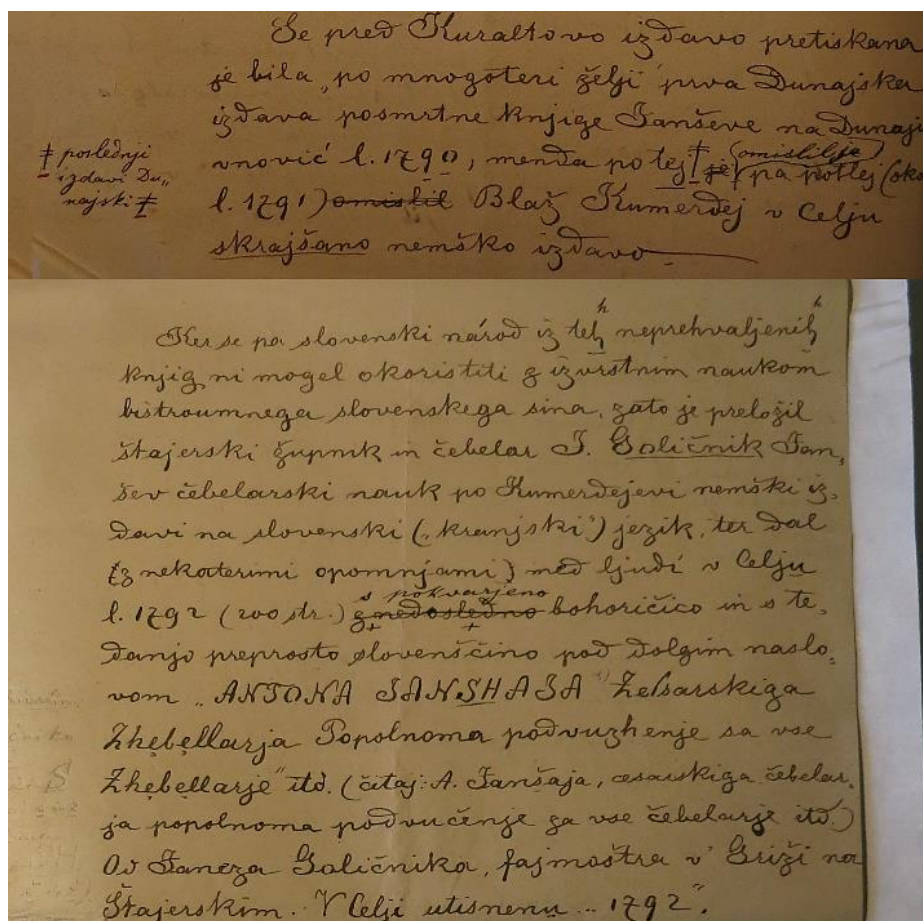 Še pred Kuraltovo izdavo pretiskana
je bila „po mnogoteri želji" prva Dunajska
izdava posmrtne knjige Janševe na Dunaji
vnovič l. 1790, menda po tej ‡ je omislil je pa potlej (oko
‡ poslednji
izdavi Du„
najski ‡
l. 1791) omislil Blaž Kumerdej v Celju
skrajšano nemško izdavo.
Ker se pa slovenski národ iz teh neprehvaljenih
knjig ni mogel okoristiti z izvrstnim naukom
bistroumnega slovenskega sina, zato je preložil
štajerski župnik in čebelar J. Goličnik Jan„
šev čebelarski nauk po Kumerdejevi nemški iz„
davi na slovenski („kranjski") jezik, ter dal
(z nekaterimi opomnjami) med ljudi v Celju
s pokvarjeno
l. 1792 (200 str.) z nedosledno bohoričico in s te„
danjo preprosto slovenščino pod dolgim naslo„
vom „ANTONA JANSHAJA Zesarskiga
Zhebellarja Popolnoma podvuzhenje sa vse
Zhebellarje" itd. (čitaj: A. Janšaja, cesarskiga čebelar„
ja popolnoma podvučenje za vse čebelarje itd.)
Od Janeza Goličnika, fajmoštra v' Griži na
Štajerskim. V Celji utisnenu .. 1792".